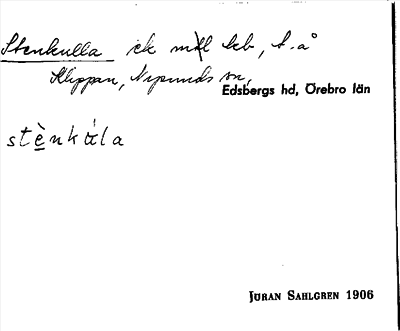 Stenkulla ick mtl leb, t. å
Klippan, Nysunds sn,
Edsbergs hd, Örebro län
stènku̇la
JÖRAN SAHLGREN 1906